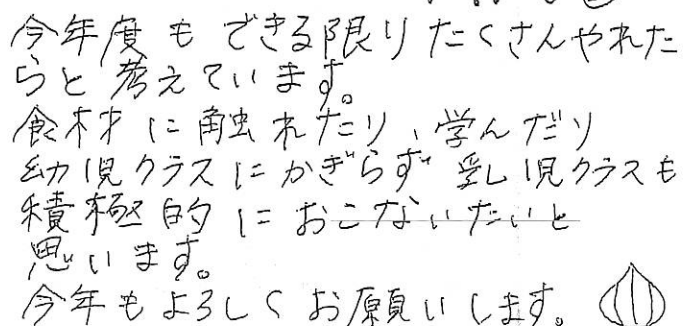 今年度も できる限り たくさんやれた
らと 考えています。
食材 に 触れたり、学んだり
幼児クラスに かぎらず 乳児クラスも
積極的 に おこないたいと
思います。
今年もよろしく お願いします。